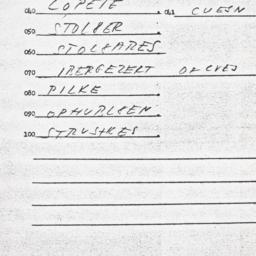 040 LOPEIE 041 CUESN
050 STOLBER
060 STOLHARES
070 IBERGEZERT OFCVES
080 PILKE
090 OPHURLEEN
100 STRUSHRES